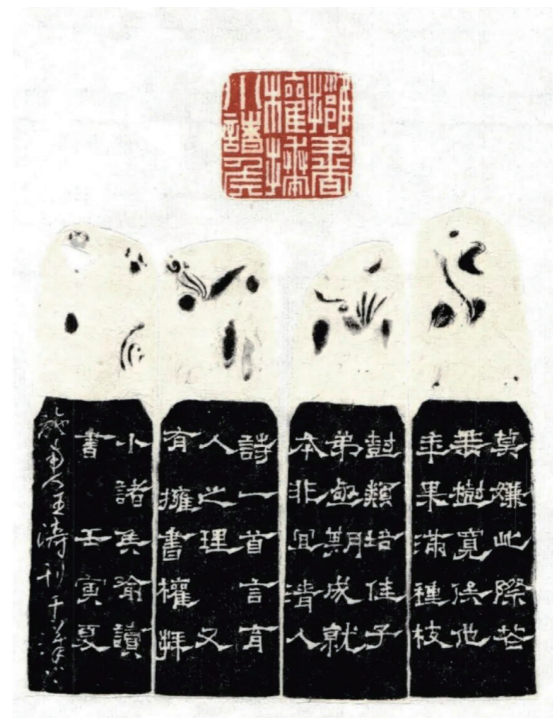 擁書
權拜
小諸矦
莫嫌此際花
樹寬俟他
年果滿種枝
類培佳子
弟亟期成就
本非宜清人
詩一首言育
人之理又
有擁書權拜
小諸矦瑜讀
書壬寅夏
人王濤刊于